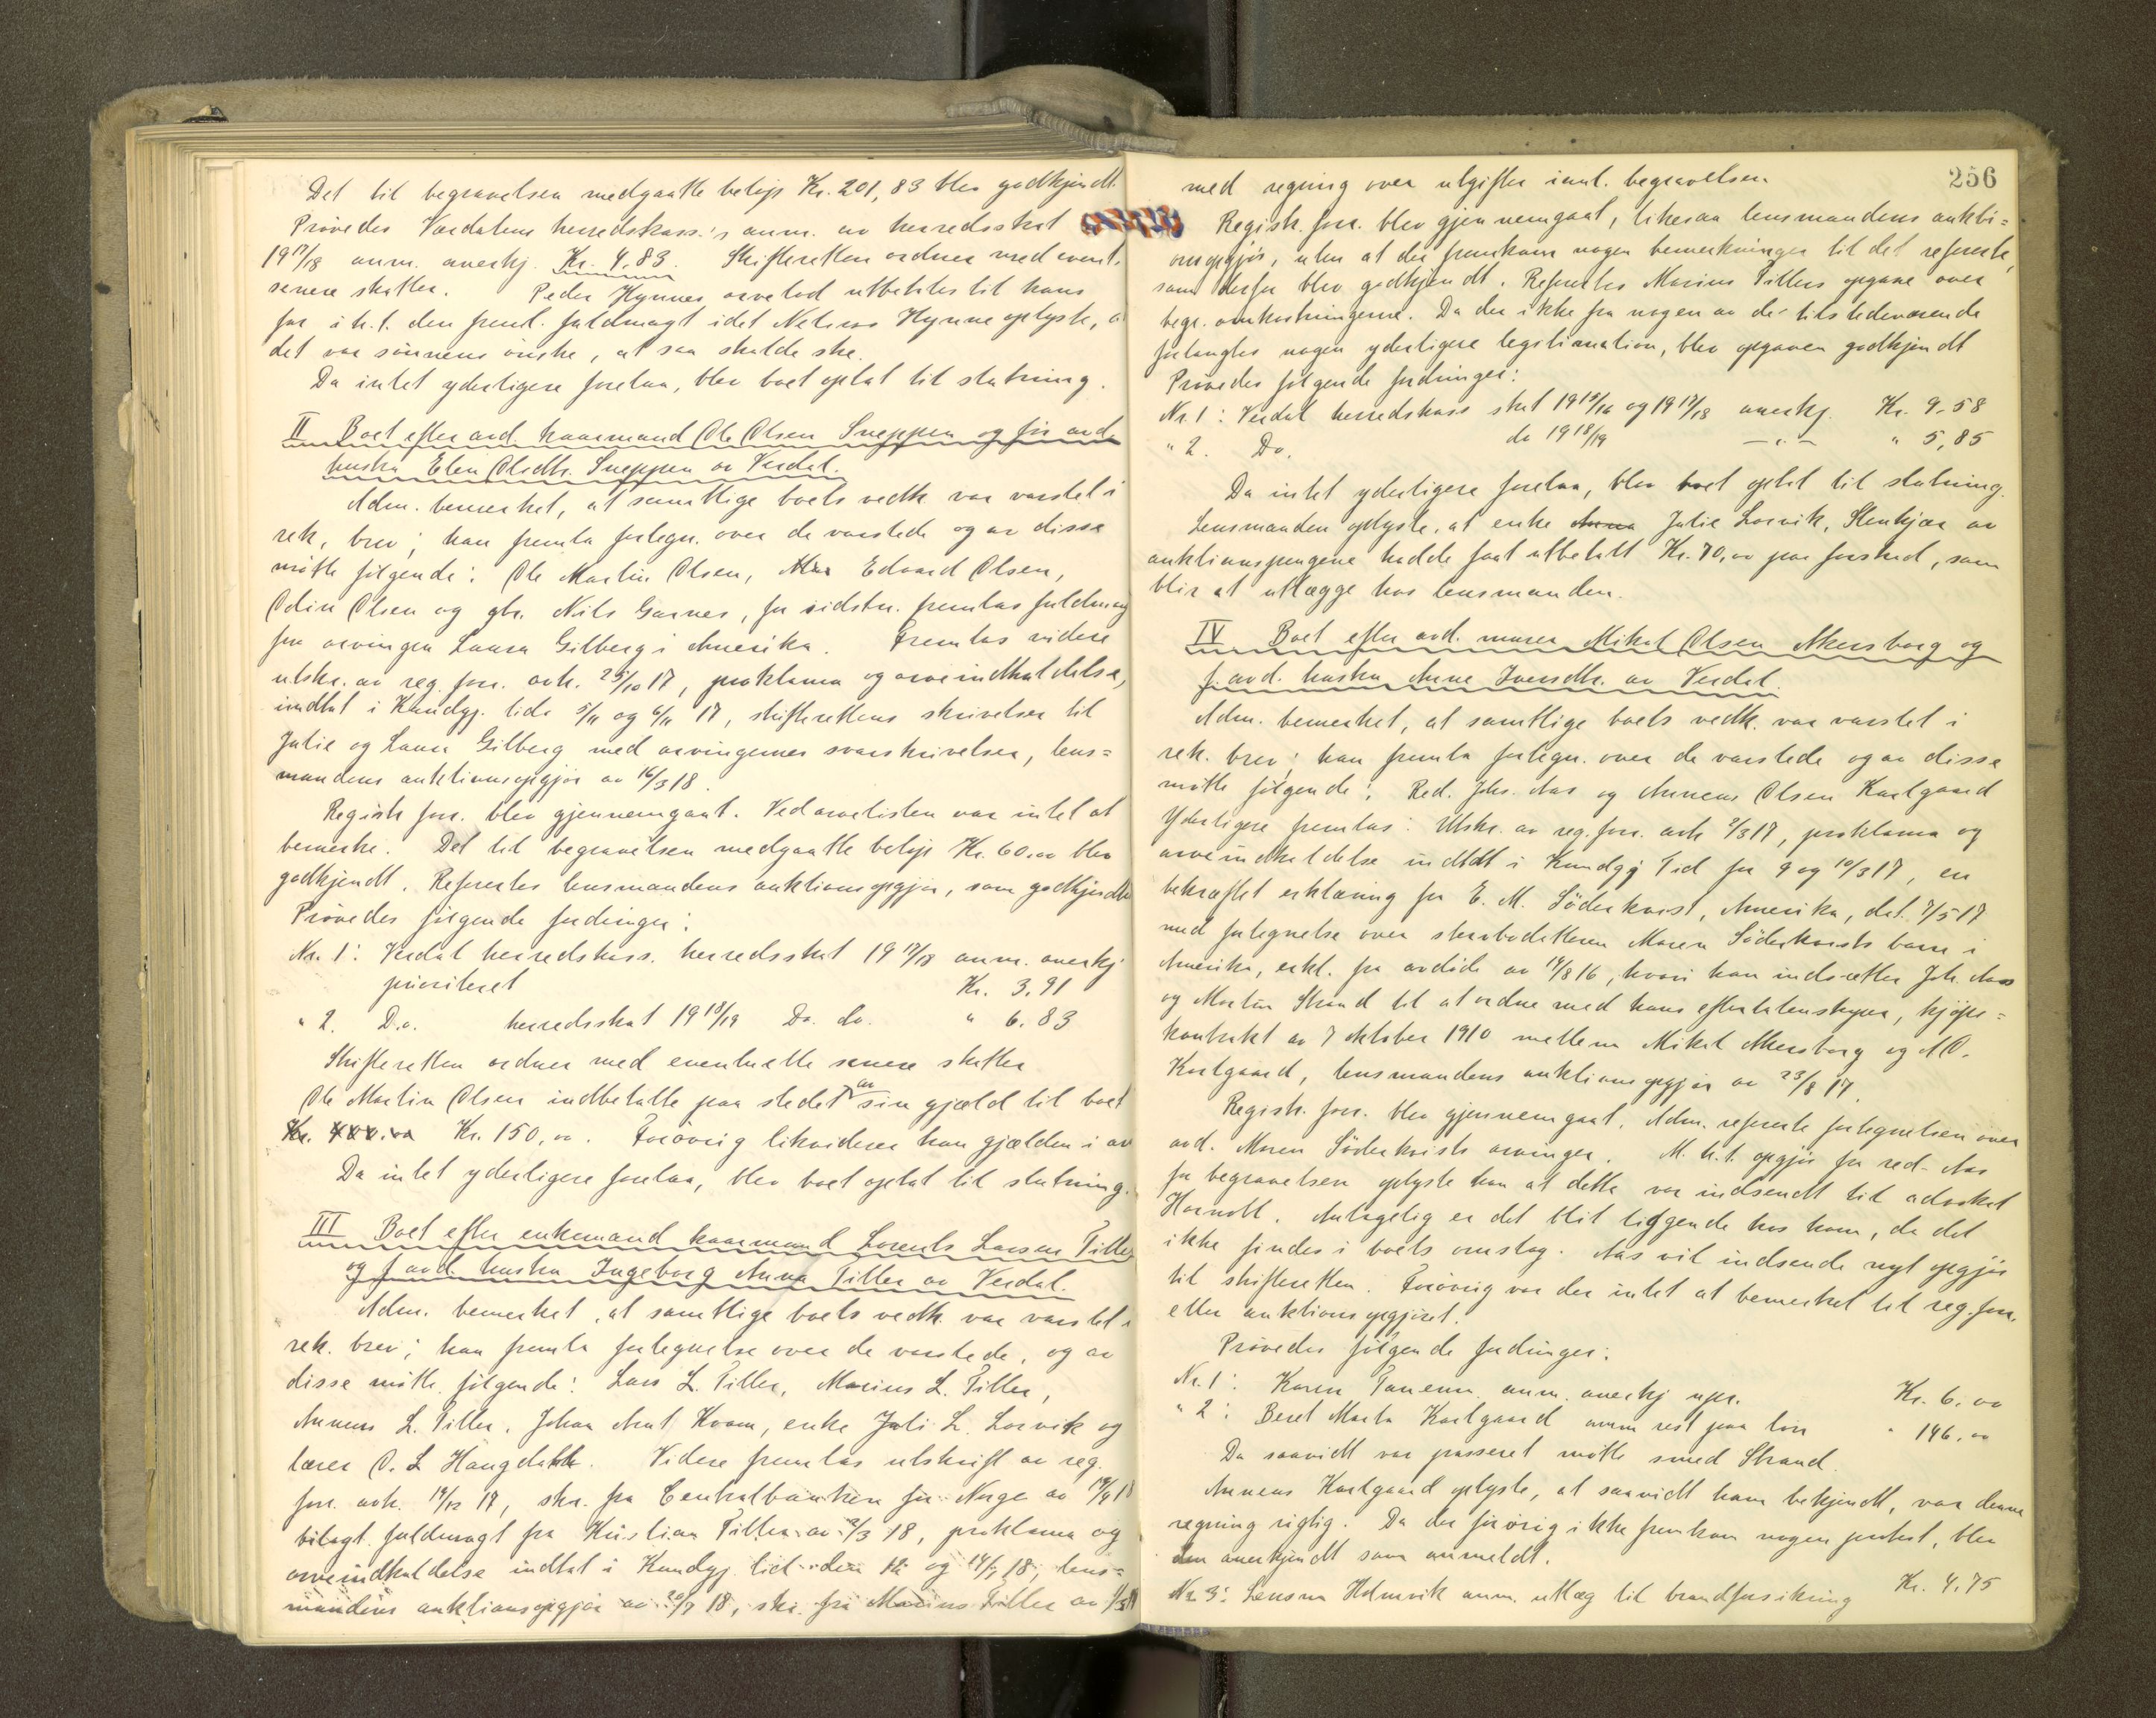 Det til begravelsen medgaatte beløp Kr. 201,83 blev godkjendt.
Prøvedes Værdalens herredskass.'s anm. av herredsskat
19 17/18 anm. anerkj. Kr. 4.83. Skifteretten ordner med event.
senere skatter. Peder Hynnes arvelod utbetales til hans
far i h. t. den freml. fuldmagt idet Nelius Hynne oplyste, a
det var sønnens ønske, at saa skulde ske.
Da intet yderligere forelaa, blev boet optat til slutning.
II Boet efter avd. kaarmand Ole Olsen Sneppen og før avd.
hustru Elen Olsdtr. Sneppen av Verdal.
Adm. bemerket, at samtlige boets vedk. var varslet i
rek. brev; han fremla fortegn. over de varslede og av disse
møtte følgende: Ole Martin Olsen, Edvard Olsen,
Odin Olsen og gbr. Nils Garnes, for sidstn. fremlas fuldmag
fra arvingen Laura Gilberg i Amerika. Fremlas videre
utskr. av reg. forr. avh. 25/10 17, proklama og arveindkaldelse,
indtat i Kundgj. tide 5/11 og 6/11 17, skifterettens skrivelser til
Julie og Laura Gilberg med arvingernes svarskrivelser, lens=
mandens auktionsopgjør av 16/3 18.
Registr. forr. blev gjennemgaat. Ved arvelisten var intet at
bemerke. Det til begravelsen medgaatte beløp Kr. 60,00 blev
godkjendt. Refereres lensmandens auktionsopgjør, som godkjendtes
Prøvedes følgende fordringer:
Nr. 1: Verdal herredskass. herredsskat 19 17/18 anm. anerkj
prioriteret Kr. 3,91
" 2. Do. herredsskat 19 18/19 Do. do. " 6.83
Skifteretten ordner med eventuelle senere skatter
Ole Martin Olsen indbetalte paa stedet av sin gjæld til boet
Kr. 400.00 Kr. 150,00. Forøvrig likviderer han gjælden i arv
Da intet yderligere forelaa, blev boet optat til slutning.
III Boet efter enkemand kaarmand Lorents Larsen Tiller
og f. avd. hustru Ingeborg Anna Tiller av Verdal.
Adm. bemerket, at samtlige boets vedk. var varslet i
rek. brev; han fremla fortegnelse over de varslede, og av
disse møtte følgende: Lars L. Tiller, Marius L. Tiller,
Anneus L. Tiller, Johan Arnt Kvam, enke Juli L. Lorvik og
lærer O. L Haugdahl. Videre fremlas utskrift av reg.
forr. avh. 14/12 17, skr. fra Centralbanken for Norge av 18
bilagt fuldmagt fra Kristian Tiller av 2/3 18, proklama og
arveindkaldelse indtat i Kundgj. tid. den og 14/1 18, lens=
mandens auktionsopgjør av 18, skr. fra Marius Tiller av
256
med regning over utgifter i anl. begravelsen.
Registr. forr. blev gjennemgaat, likesaa lensmandens auktio=
onsopgjør, uten at der fremkom nogen bemerkninger til det refererte,
som derfor blev godkjendt. Refereres Marius Tillers opgave over
begr. omkostningerne. Da der ikke fra nogen av de tilstedeværende
forlangtes nogen yderligere legitimation, blev opgaven godkjendt
Prøvedes følgende fordringer:
Nr. 1: Verdal herredskass skat 19 15/16 og 19 17/18 anerkj. Kr. 9.58
" 2. Do. do 19 18/19 — " — " 5,85
Da intet yderligere forelaa, blev boet optat til slutning.
Lensmanden oplyste, at enke Anna Julie Lorvik, Stenkjær av
auktionspengene hadde faat utbetalt Kr. 70,00 paa forskud, som
blir at utlægge hos lensmanden.
IV Boet efter avd. murer Mikal Olsen Akersborg og
f. avd. hustru Anne Iversdtr. av Verdal.
Adm. bemerket, at samtlige boets vedk. var varslet i
rek. brev; han fremla fortegn. over de varslede og av disse
møtte følgende: Red. Johs. Aas og Anneus Olsen Karlgaard
Yderligere fremlas: Utskr. av reg. forr. avh 2/3 17, proklama og
arveindkaldelse indtat i Kundgj Tid for 9 og 10/3 17, en
bekræftet erklæring fra E. M. Söderkvist, Amerika, dat. 7/5 17
med fortegnelse over Maren Söderkvists barn i
Amerika, erkl. fra avdøde av 14/8 16, hvori han indsætter Joh. Aas
og Martin Strand til at ordne med hans efterlatenskaper, kjøpe=
kontrakt av 7 oktober 1910 mellem Mikal Akersborg og A O.
Karlgaard, lensmandens auktionsopgjør av 23/8 17.
Registr. forr. blev gjennemgaat. Adm. refererte fortegnelsen over
avd. Maren Söderkvists arvinger. M. h. t. opgjør fra red. Aas
for begravelsen oplyste han at dette var indsendt til advokat
. Antagelig er det blit liggende hos ham, da det
ikke findes i boets omslag. Aas vil indsende nyt opgjør
til skifteretten. Forøvrig var der intet at bemerket til reg. forr.
eller auktionsopgjøret.
Prøvedes følgende fordringer:
Nr. 1: Karen anm. anerkj upr. Kr. 6.00
" 2: Beret Marta Karlgaard anm rest paa løn " 146.00
Da saavidt var passeret møtte smed Strand.
Anneus Karlgaard oplyste, at saavidt ham bekjendt, var denne
regning rigtig. Da der forøvrig ikke fremkom nogen protest, blev
den anerkjendt som anmeldt.
Nr 3: Lensm Holmvik anm. utlæg til brandforsikring Kr. 4,75